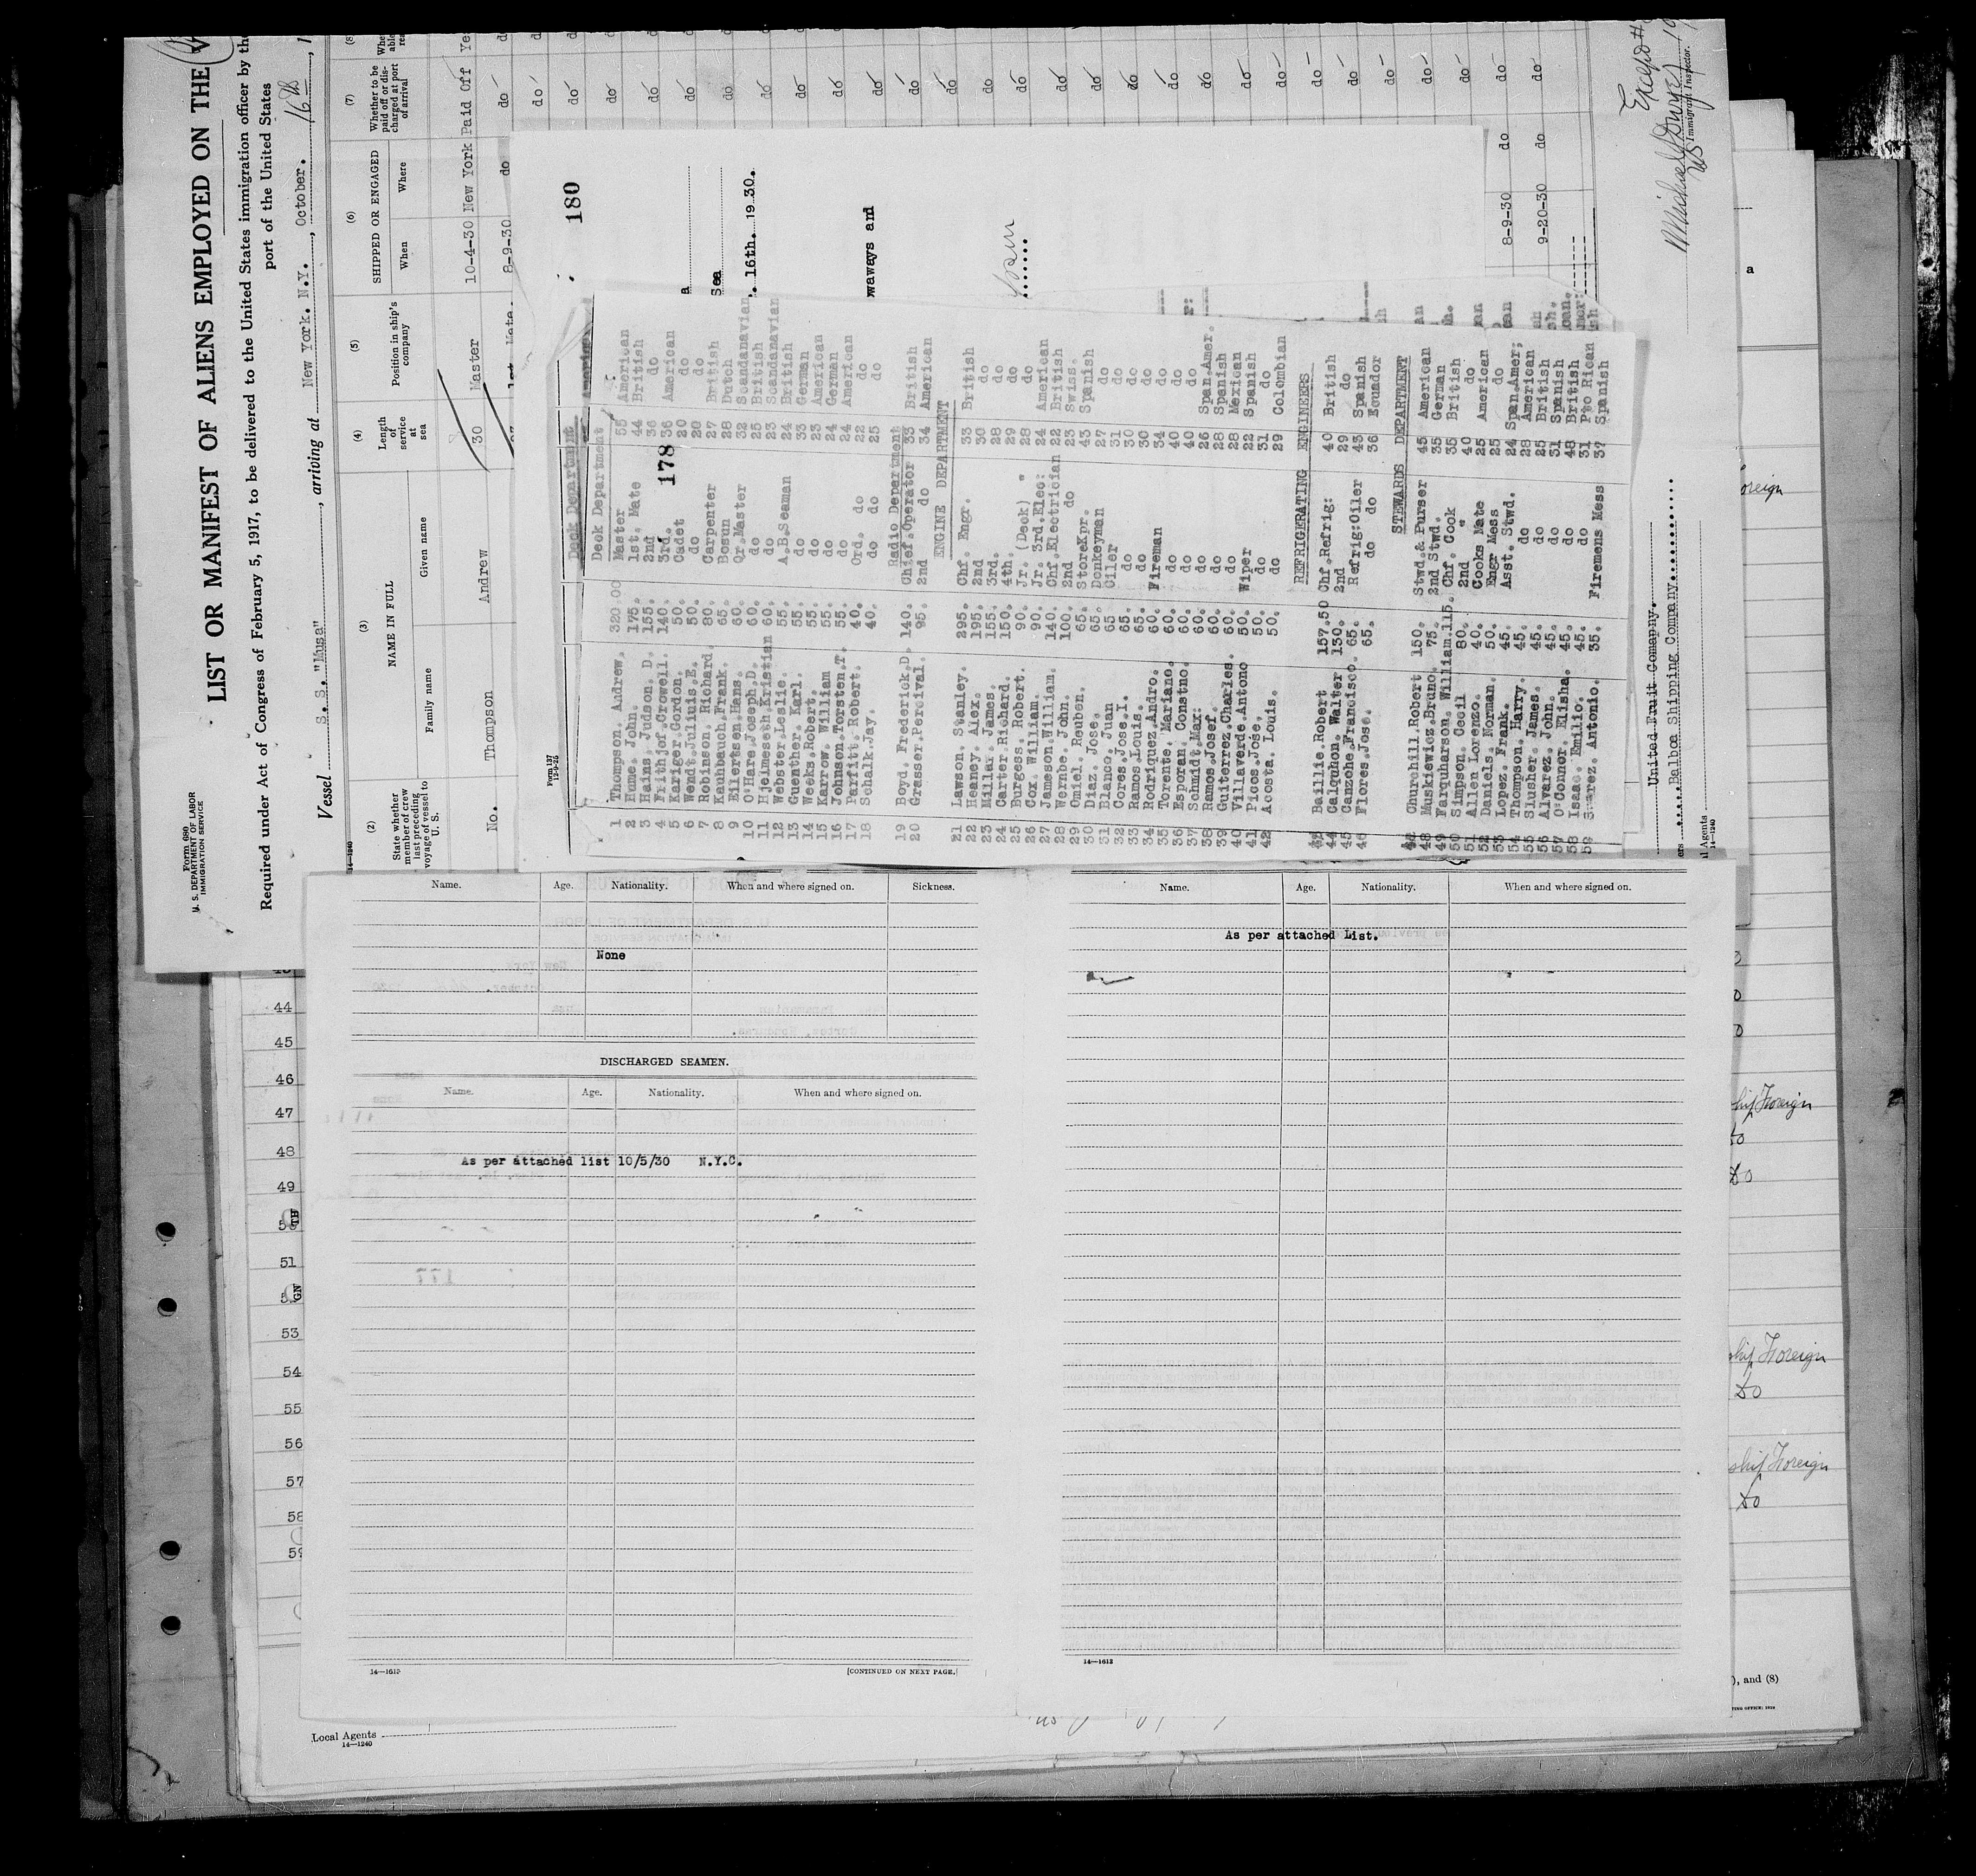 Form 680
U. S. DEPARTMENT OF LABOR
IMMIGRATION SERVICE
LIST OR MANIFEST OF ALIENS EMPLOYED ON THE
Required under Act of Congress of February 5, 1917, to be delivered to the United States immigration officer by the
port of the United States
Vessel S. S. "Musa", arriving at New York. N.Y., October. 16th, 1
14—1240
(2) (3) (4) (5) (6) (7) (8)
State whether member of crew last preceding voyage of vessel to U. S.
NAME IN FULL
Family name Given name
Length of service at sea
Position in ship's company
SHIPPED OR ENGAGED
When Where
Whether to be paid off or discharged at port of arrival
No. Thompson Andrew 30 Master 10-4-30 New York Paid Off Yes
1st Mate. 8-9-30 do do
8-9-30 do do
9-20-30 do do
180
Sea
. 16th. 19 30.
waways and
Form 137
Deck Department
Deck Department
178
1 Thompson. Andrew. 320.00 Master 55 American
2 Hume. John. 175. 1st. Mate 44 British
3 Hains. Judson. D. 155. 2nd 36 do
4 Frithjof.Crowell. 140. 3rd. 36 American
5 Kariger.Gordon. 50. Cadet 20 do
6 Wendt.Juliuis.E. 50. do 20 do
7 Robinson. Richard. 80. Carpenter 27 British
8 Kauhbauch.Frank. 65. Bosun 28 Dutch
9 Eilertsen.Hans. 60. Qr.Master 32 Scandanavian
10 O'Hare.Joseph.D. 60. do 25 British
11 Hjelmeseth.Kristian 60. do 23 Scandanavian
12 Webster.Leslie. 55. A.B.Seaman 24 British
13 Guenther. Karl. 55. do 33 German
14 Weeks.Robert. 55. do 23 American
15 Karrow. William 55. do 24 German
16 Johnson.Torsten.T. 55. do 24 American
17 Parfitt.Robert. 40. Ord. do 22 do
18 Schalk.Jay. 40. do do 25 do
Radio Department
19 Boyd. Frederick.D. 140. Chief.Operator 33 British
20 Grasser.Percival. 95. 2nd do 34 American
ENGINE DEPARTMENT
21 Lawson. Stanley. 295. Chf. Engr. 33 British
22 Heaney. Alex. 195. 2nd 30 do
23 Millar. James. 155. 3rd. 28 do
24 Carter.Richard. 150. 4th. 29 do
25 Burgess. Robert. 90. Jr. (Deck) 28 do
26 Cox. William. 90. Jr. 3rd.Elec: 24 American
27 Jameson.William. 140. Chf.Electrician 22 British
28 Wernbe. John. 100. 2nd do 23 Swiss.
29 Omiel. Reuben. 65. StoreKpr. 43 Spanish
30 Diaz. Jose. 65. Donkeyman 27 do
31 Blanco. Juan 65. Oiler 31 do
32 Cores.Jose.I. 65. do 30 do
33 Ramos.Louis. 65. do 30 do
34 Rodriquez.Andro. 60. Fireman 34 do
35 Torente. Mariano. 60. do 40 do
36 Esporan. Constno. 60. do 40 do
37 Schmidt.Max: 60. do 26 Span.Amer.
38 Ramos.Josef. 60. do 28 Spanish
39 Guiterrez.Charles. 60. do 28 Mexican
40 Villaverde.Antono 50. Wiper 22 Spanish
41 Picos.Jose. 50. do 31 do
42 Acosta. Louis. 50. do 29 Colombian
REFRIGERATING ENGINEERS
43 Baillie.Robert 157.50 Chf.Refrig: 40 British
44 Calquhon. Walter 130. 2nd 29 do
45 Canzohe.Francisco. 65. Refrig:Oiler 43 Spanish
46 Flores.Jose. 65. do do 36 Ecuador
STEWARDS DEPARTMENT
Churchill.Robert 150. Stwd.& Purser 45 American
48 Muskiewicz.Bruno. 75. 2nd Stwd. 35 German
49 Farquharson. William.115. Chf. Cook 35 British
50 Simpson. Cecil 80. 2nd " 40 do
51 Allen Lorenzo. 40. Cooks Mate 25 American
52 Daniels.Norman. 50. Engr Mess 25 do
53 Lopez. Frank. 45. Asst. Stwd. 24 Span.Amer;
54 Thompson. Harry. 45. do 28 American
55 Slusher. James. 45. do 25 British
56 Alvarez. John. 45. do 31 Spanish
57 O'Connor. Elisha. 45. do 48 British
58 Isaac. Emilio. 45. do 31 Pto Rican
59 Suarez. Antonio. 35. Firemens Mess 37 Spanish
Immigrant Inspector.
United Fruit Comapny.
Balboa Shipping Company
l Agents
14—1240
Name. Age. Nationality. When and where signed on. Sickness.
None
DISCHARGED SEAMEN.
Name. Age. Nationality. When and where signed on.
As per attached list 10/5/30 N.Y.C.
14—1613 [CONTINUED ON NEXT PAGE.]
Name. Age. Nationality. When and where signed on.
As per attached List.
14—1613
44
45
46
47
48
49
50
51
53
54
55
56
57
58
59
oreign
ship Foreign
do
do
ship Foreign
do
ship Foreign
do
), and (8)
Local Agents
14—1240